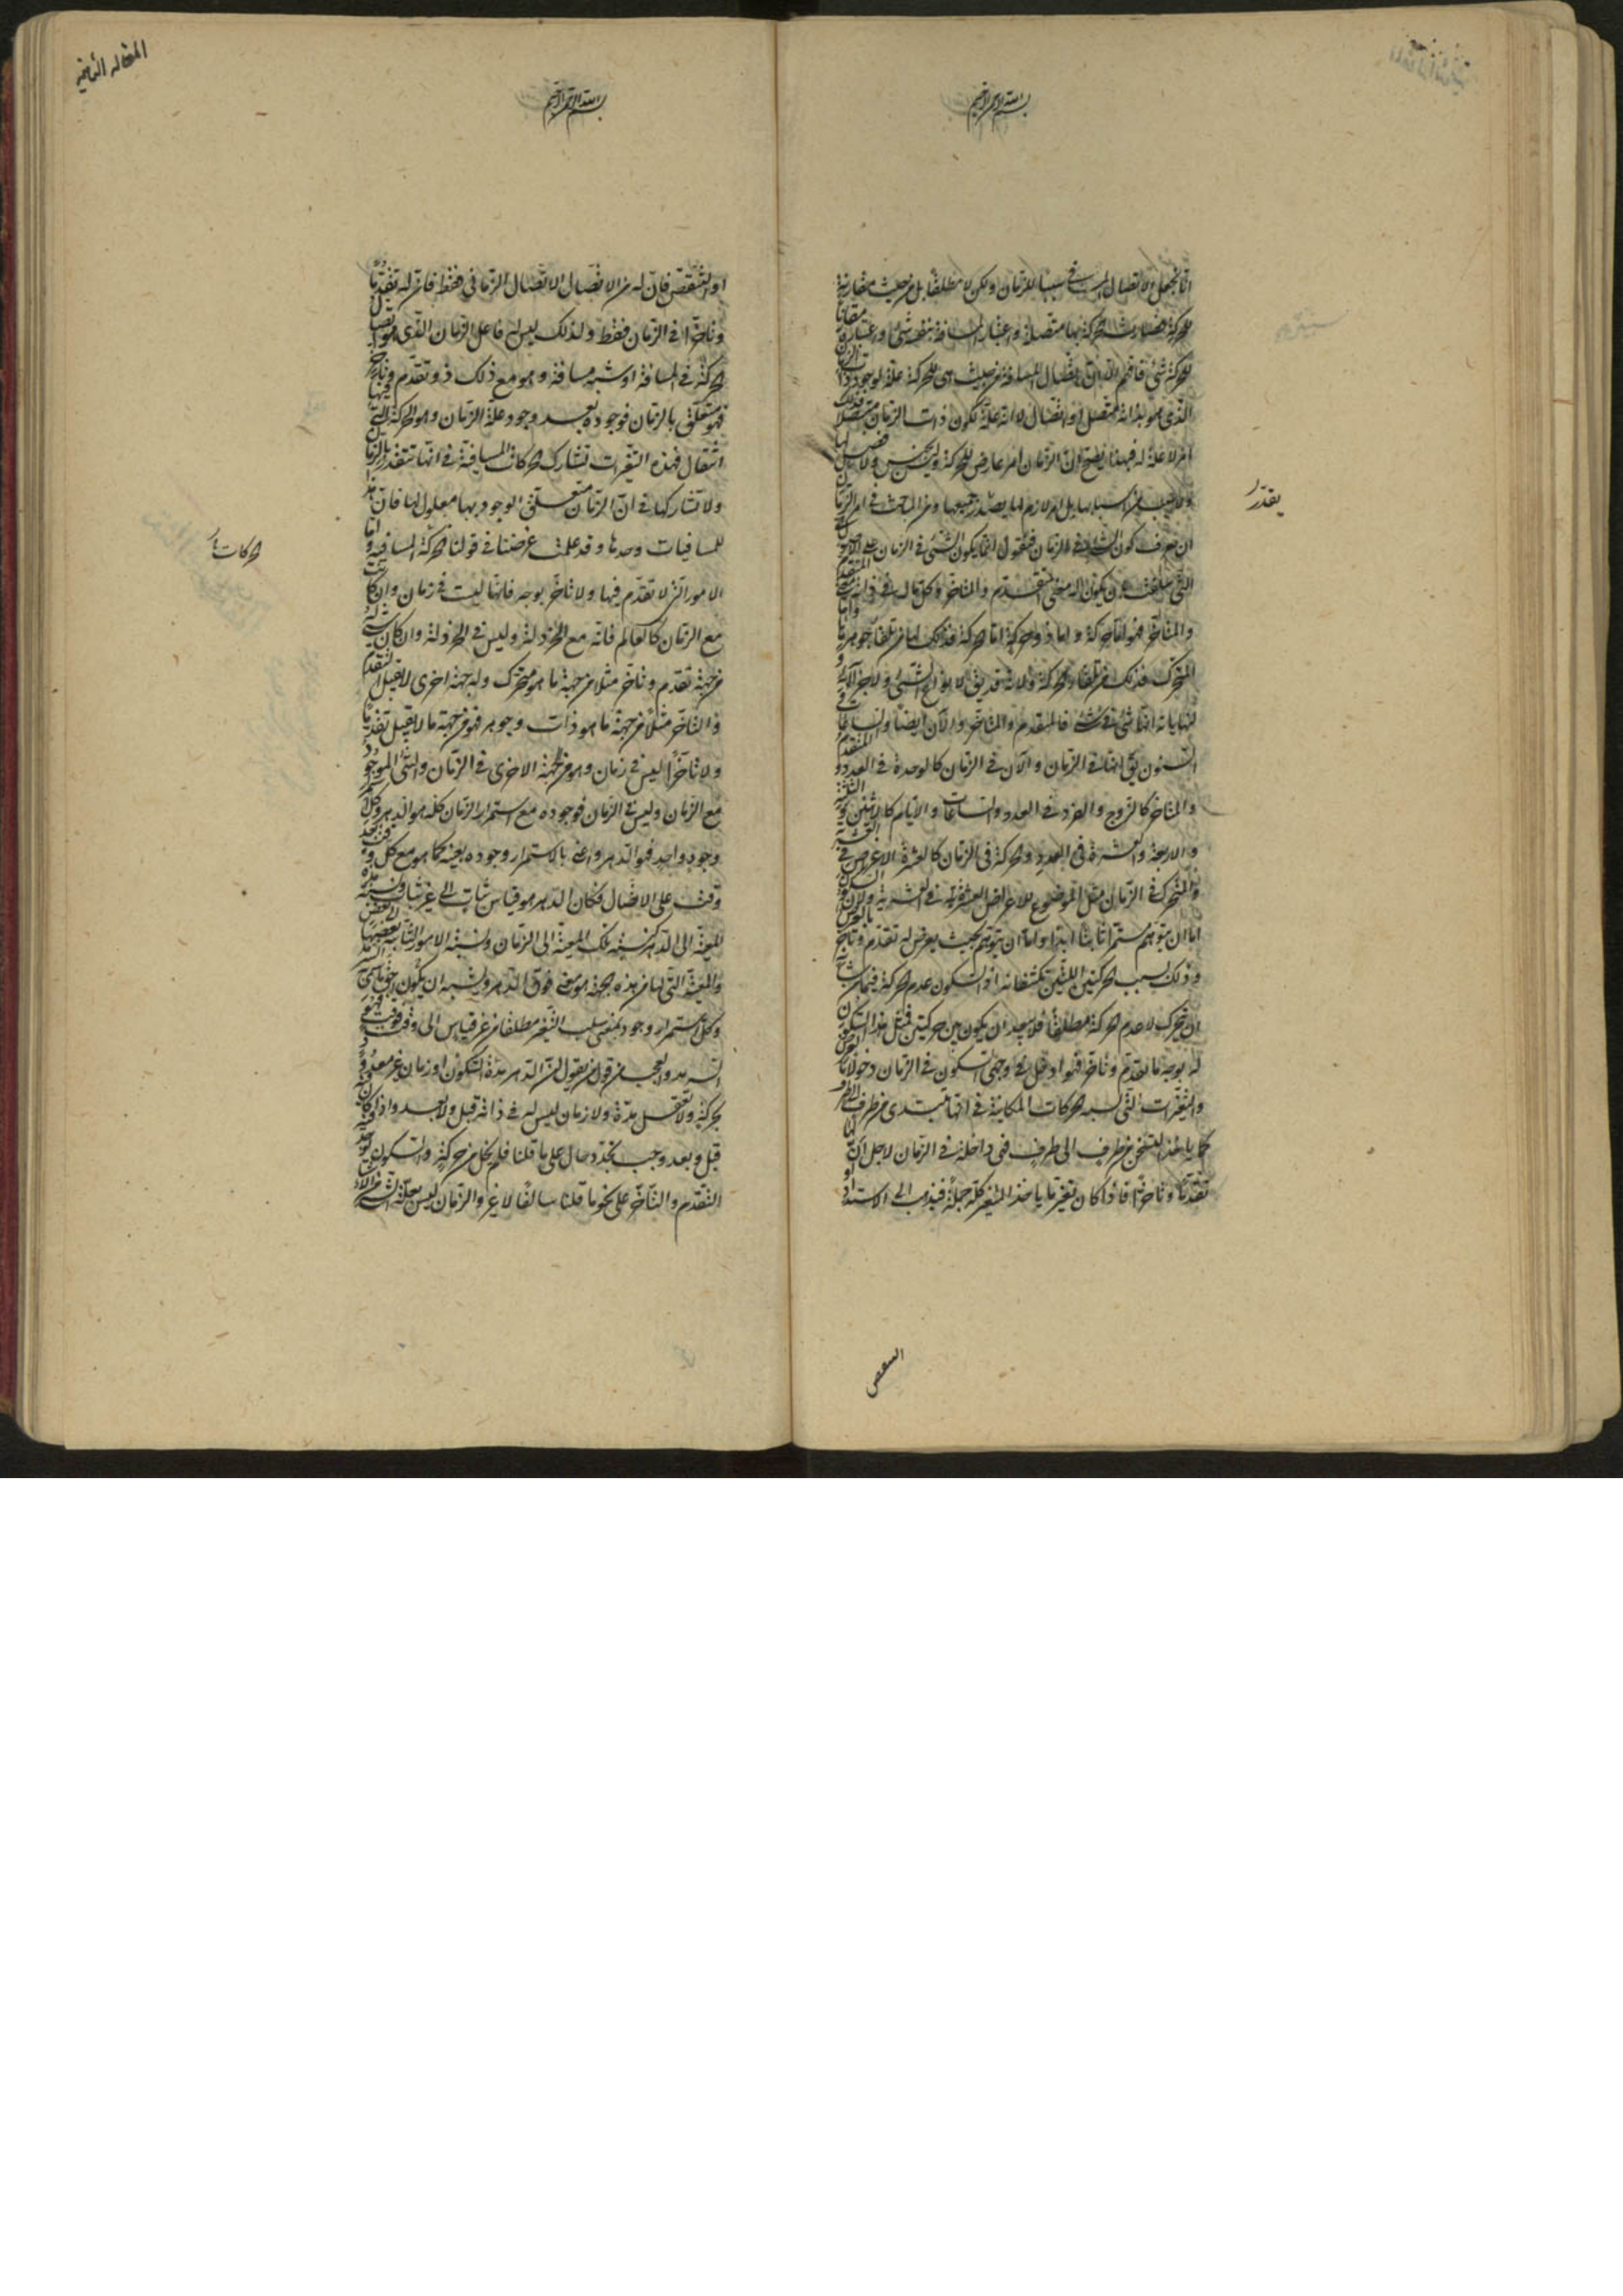 بسم الله الرحمن الرحيم
انا نجعل الاتصال المسافى سببا للزمان ولكن لا مطلقا بل من حيث مقارنة
للحركة فصارت الحركة بها متصلة واعتبار المسافة بنفسه شئ واعتبار مقارنة
للحركة شئ فافهم الآن ان اتصال المسافة من حيث هى للحركة علة لوجود ذات الزمان
الذى هو بذاته متصل او اتصال لا انه علة لكون ذات الزمان متصلا فذلك
امر لا علة له فبهذا يتضح ان الزمان امر عارض للحركة وليس بجنس ولا فصل لها
ولا سبب من اسبابها بل امر لازم لها يقدر جميعها ومن المباحث فى امر الزمان
ان نعرف كون الشئ فى الزمان فنقول انما يكون الشئ فى الزمان على الاصول
التى سلفت بان يكون له معنى المتقدم والمتاخر وكل ما له فى ذاته معنى المتقدم
والمتاخر فهو اما حركة واما ذو حركة اما الحركة فذلك لها من تلقاء جوهرها واما
المتحرك فذلك من تلقاء الحركة ولانه قد يق لانواع الشئ ولاجزائه و
لنهاياته انها شئ فى الشئ فالمتقدم والمتاخر والآن ايضا والساعات و
السنون يق انها فى الزمان والآن فى الزمان كالوحدة فى العدد والمتقدم
والمتاخر كالزوج والفرد فى العدد والساعات والايام كالاثنين والثلثة
والاربعة والعشرة فى العدد والحركة فى الزمان كالعشرة الاعراض فى العشرية
والمتحرك فى الزمان مثل الموضوع للاعراض العشرة فى العشرية ولان السكون
اما ان يتوهم مستمرا ثابتا ابدا واما ان يتوهم بحيث يعرض له تقدم وتاخر بالعرض
وذلك بسبب الحركتين اللتين تكتنفانه اذ السكون عدم الحركة فيما من شأنه
ان يتحرك لا عدم الحركة مطلقا فلا يبعد ان يكون بين حركتين فمثل هذا السكون
له بوجه ما تقدم وتاخر فهو ادخل فى وجهى السكون فى الزمان دخولا بالعرض
والتغيرات التى تشبه الحركات المكانية فى انها تبتدى من طرف الى طرف
كما ياخذ التسخن من طرف الى طرف فهى داخلة فى الزمان لاجل ان لها
تقدما وتاخرا فاذا كان تغير ما ياخذ المتغير كله جملة فيذهب الى الاشتداد
يقدر
السعص
المقاله الثانيه
بسم الله الرحمن الرحيم
او التنقص فان له من الاتصال الاتصال الزمانى فقط فان له تقدما
وتاخرا فى الزمان فقط ولذلك ليس له فاعل الزمان الذى هو اتصال
الحركة فى المسافة او شبه مسافة وهو مع ذلك ذو تقدم وتاخر
فهو متعلق بالزمان فوجوده بعد وجود علة الزمان وهو الحركة التى فيها
انتقال فهذه التغيرات تشارك الحركات المسافية فى انها تتقدر بالزمان
ولا تشاركها فى ان الزمان متعلق الوجود بها معلول لها فان هذا
للمسافيات وحدها وقد علمت غرضنا فى قولنا الحركة المسافية واما
الامور التى لا تقدم فيها ولا تاخر بوجه فانها ليست فى زمان وان كانت
مع الزمان كالعالم فانه مع الخردلة وليس فى الخردلة وان كان شئ له
من جهة تقدم وتاخر مثلا من جهة ما هو متحرك وله جهة اخرى لا تقبل التقدم
و التاخر مثلا من جهة ما هو ذات وجوهر فهو من جهة ما لا يقبل تقدما
ولا تاخرا ليس فى زمان وهو من الجهة الاخرى فى الزمان والشئ الموجود
مع الزمان وليس فى الزمان فوجوده مع استمرار الزمان كله هو الدهر وكل استمرار
وجود واحد فهو الدهر واعنى بالاستمرار وجوده بعينه كما هو مع كل وقت بعد
وقت على الاتصال فكان الدهر هو قياس ثبات الى غير ثبات ونسبة هذه
المعية الى الدهر كنسبة تلك المعية الى الزمان ونسبة الامور الثابتة بعضها الى بعض
والمعية التى لها من هذه الجهة هو معنى فوق الدهر ويشبه ان يكون احق ما سمى به السرمد
وكل استمرار وجود بمعنى سلب التغير مطلقا من غير قياس الى وقت فوقت فهو
السرمد والعجب من قول من يقول ان الدهر مدة السكون او زمان غير معدود
بحركة ولا تعقل مدة ولا زمان ليس له فى ذاته قبل ولا بعد واذا كان فيه
قبل وبعد وجب تجدد حال على ما قلنا فلم يخل من حركة والسكون يوجد فيه
التقدم والتاخر على نحو ما قلنا سالفا لا غير والزمان ليس بعلة لشئ من الاشياء
الحركات